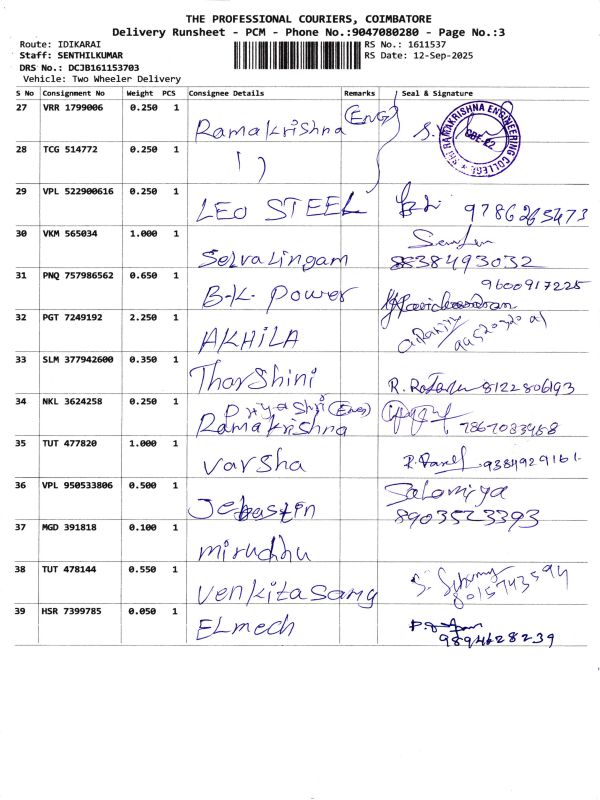 THE PROFESSIONAL COURIERS, COIMBATORE
Delivery Runsheet - PCM - Phone No.:9047080280 - Page No.:3
Route: IDIKARAI RS No.: 1611537
Staff: SENTHILKUMAR RS Date: 12-Sep-2025
DRS No.: DCJB161153703
Vehicle: Two Wheeler Delivery
S No Consignment No Weight PCS Consignee Details Remarks Seal & Signature
27 VRR 1799006 0.250 1 Ramakrishna (Eng) SRI RAMAKRISHNA ENGINEERING COLLEGE CBE-22
28 TCG 514772 0.250 1 ")
29 VPL 522900616 0.250 1 LEO STEEL 9786265473
30 VKM 565034 1.000 1 Selvalingam 8838493032
31 PNQ 757986562 0.650 1 B.K. Power 9600917225
32 PGT 7249192 2.250 1 AKHILA
33 SLM 377942600 0.350 1 Tharshini 8122806193
34 NKL 3624258 0.250 1 Priya Shri (Eng)
Ramakrishna 7867083458
35 TUT 477820 1.000 1 Varsha 9384929161.
36 VPL 950533806 0.500 1 Jebastin 8903523393
37 MGD 391818 0.100 1 mirudhu
38 TUT 478144 0.550 1 Venkitasamy 8015743594
39 HSR 7399785 0.050 1 ELmech 9894628239